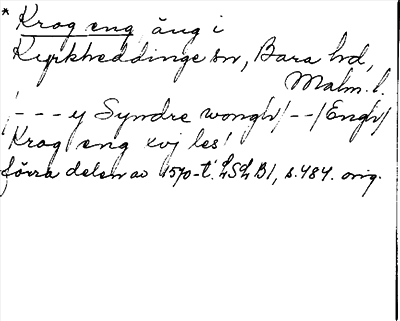 * Krog eng äng i
Kyrkheddinge sn, Bara hd,
Malm. l.
/- - - y Syndre wongh/ - -/Engh/
Krog eng xvj les/
förra delen av 1570-t. LSL B1, s. 484. orig.